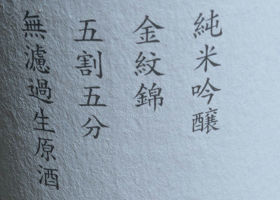 純米吟醸
金紋錦
五割五分
無濾過生原酒